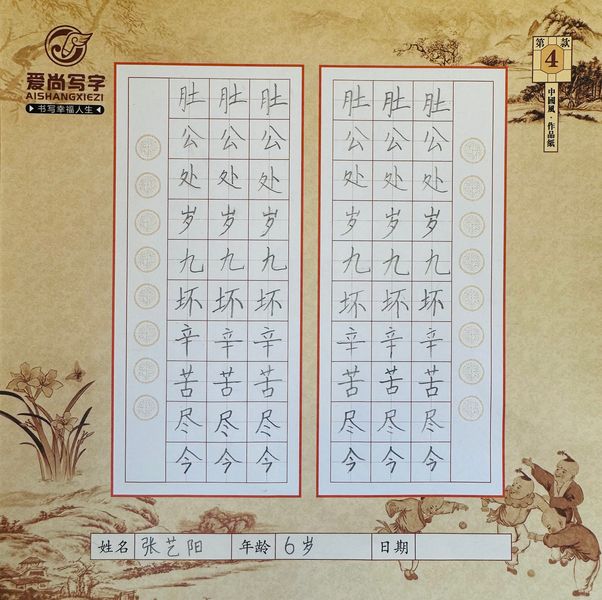 爱尚写字
AISHANGXIEZI
书写幸福人生
第4款
中國風·作品紙
肚 肚 肚 肚 肚 肚
公 公 公 公 公 公
处 处 处 处 处 处
岁 岁 岁 岁 岁 岁
九 九 九 九 九 九
坏 坏 坏 坏 坏 坏
辛 辛 辛 辛 辛 辛
苦 苦 苦 苦 苦 苦
尽 尽 尽 尽 尽 尽
今 今 今 今 今 今
姓名 张艺阳 年龄 6岁 日期